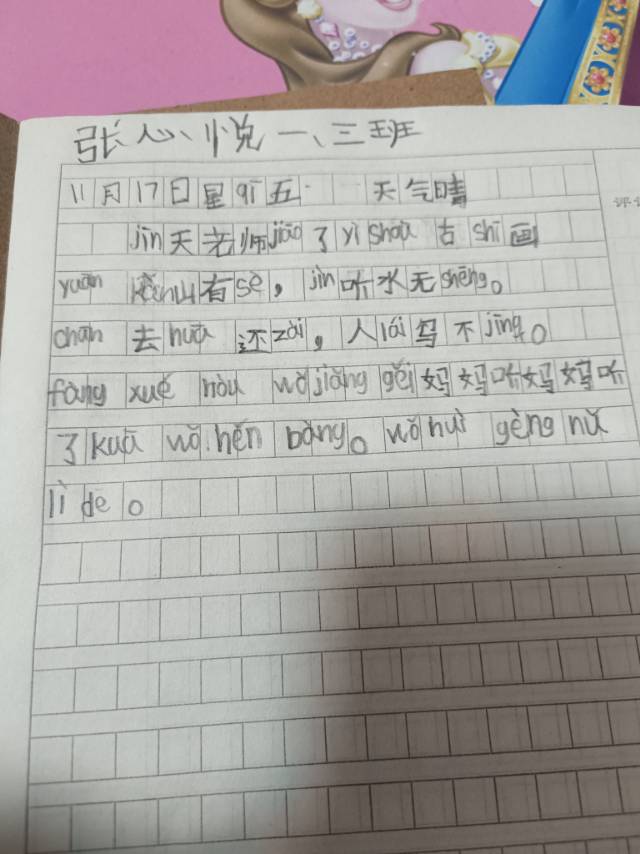 张心悦一、三班
11月17日星qī五 天气晴
jīn天老师jiāo了yì shǒu古shī画
yuǎn kàn山有sè，jìn听水无shēng。
chūn去huā还zài，人lái鸟不jīng。
fàng xué hòu wǒ jiǎng gěi妈妈听妈妈听
了kuā wǒ hěn bàng。wǒ huì gèng nǔ
lì de。
评语